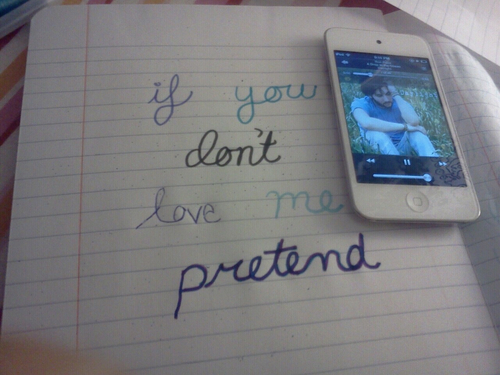 if you
don't
love me
pretend